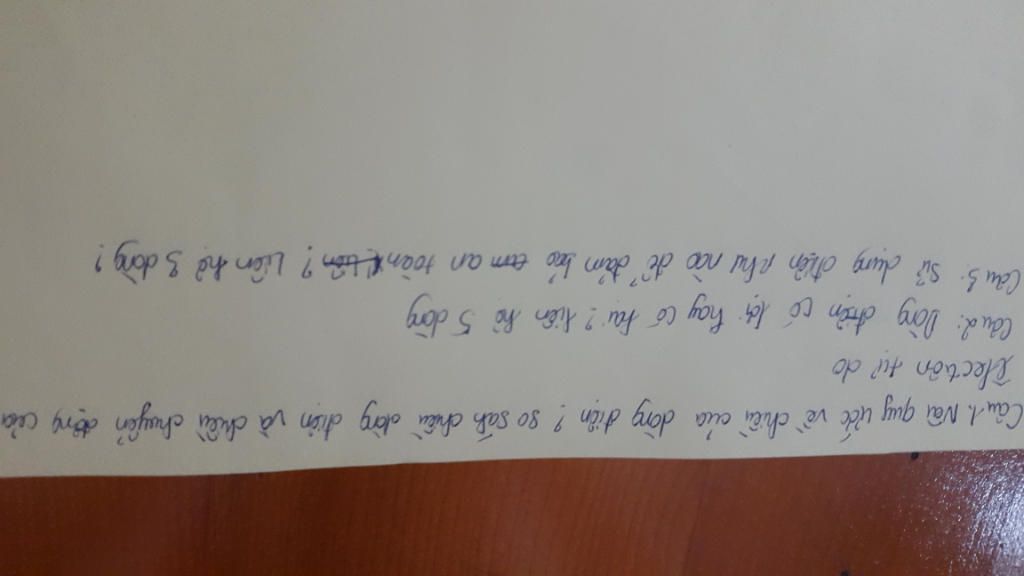 Câu 1. Nêu quy ước về chiều của dòng điện? So sánh chiều dòng điện và chiều chuyển động của
Electron tự do
Câu 2: Dòng điện có lợi hay có hại? Liên hệ 5 dòng
Câu 3: Sử dụng điện như nào để đảm bảo an toàn? Liên hệ 3 dòng?